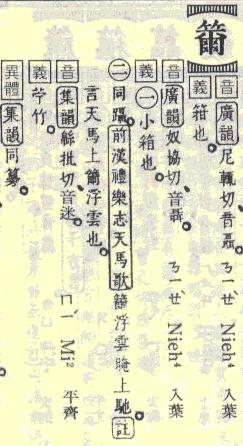 籋
音廣韻尼輒切音聶。 ㄋㄧㄝˋ Nieh⁴ 入葉
義箝也。
音廣韻奴協切、音聶。 ㄋㄧㄝˋ Nieh⁴ 入葉
義㊀小箱也。
㊁同躡。前漢禮樂志天馬歌籋浮雲晻上馳。註
言天馬上籋浮雲也。
音集韻緜批切、音迷。 ㄇㄧˊ Mi² 平齊
義竹。
異體集韻同。